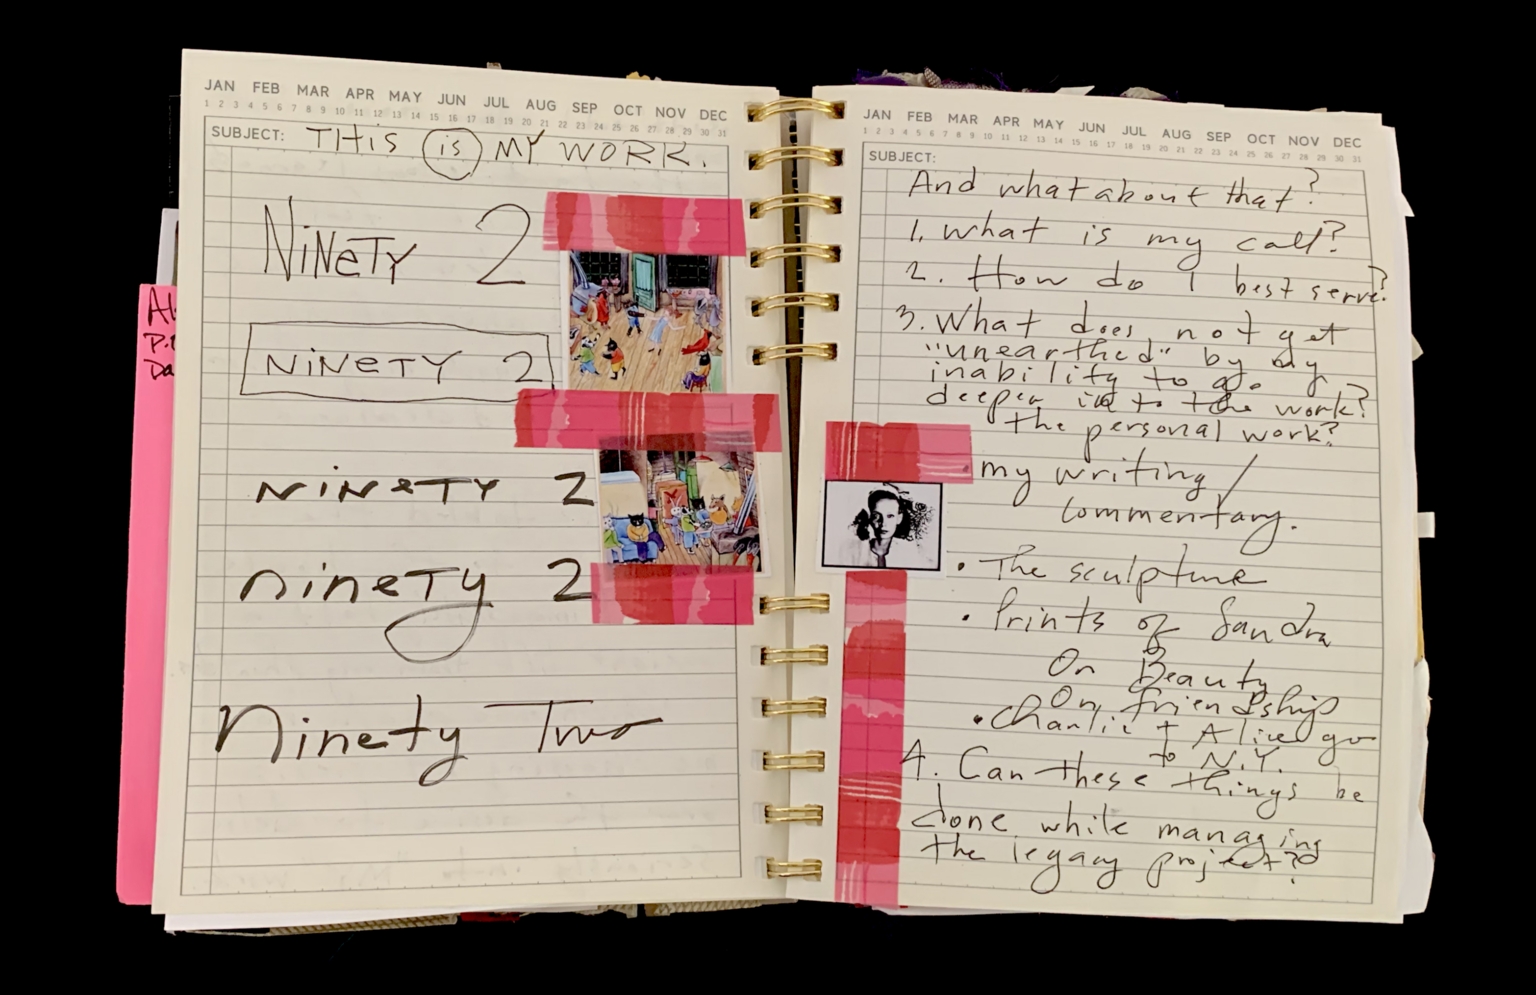 JAN FEB MAR APR MAY JUN JUL AUG SEP OCT NOV DEC
1 2 3 4 5 6 7 8 9 10 11 12 13 14 15 16 17 18 19 20 21 22 23 24 25 26 27 28 29 30 31
SUBJECT: THIS is MY WORK.
NiNeTY 2
NiNeTY 2
NiNeTY 2
nineTy 2
Ninety Two
P.
Da
JAN FEB MAR APR MAY JUN JUL AUG SEP OCT NOV DEC
1 2 3 4 5 6 7 8 9 10 11 12 13 14 15 16 17 18 19 20 21 22 23 24 25 26 27 28 29 30 31
SUBJECT:
And what about that?
1. What is my call?
2. How do I best serve?
3. What does not get
"unearthed" by my
inability to go
deeper into the work?
the personal work?
my writing /
Commentary.
• The sculpture
• Prints of Sandra
On Beauty
On friendship
• Charlie + Alice go
to N.Y.
4. Can these things be
done while managing
the legacy project?